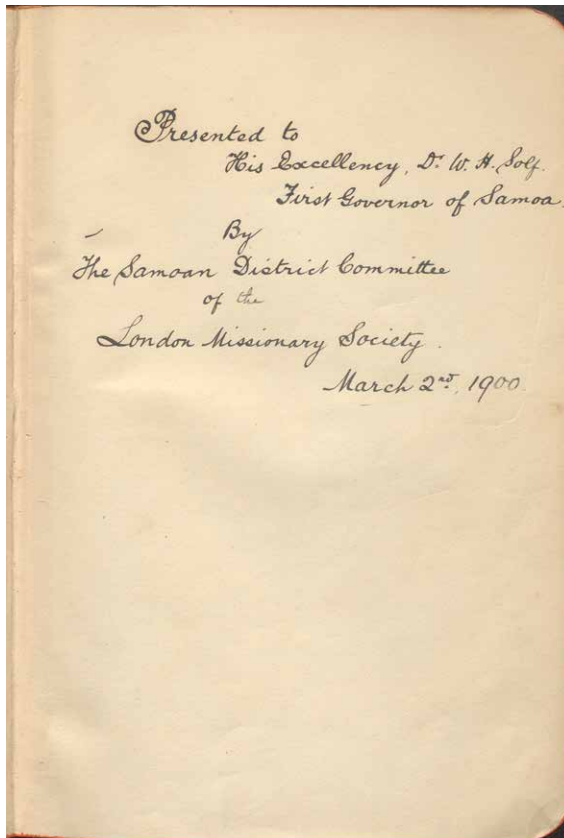 Presented to
His Excellency, Dr. W. H. Solf.
First Governor of Samoa.
By
The Samoan District Committee
of the
London Missionary Society.
March 2nd, 1900.